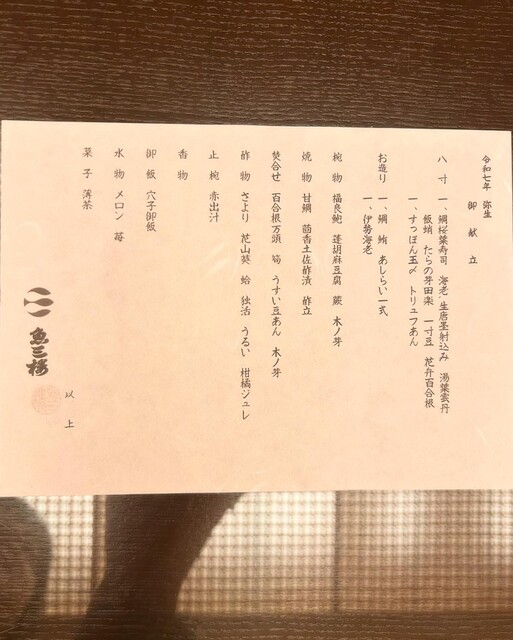 令和七年 弥生
御献立
八寸 一、鯛桜葉寿司 海老 生唐墨射込み 湯葉雲丹
飯蛸 たらの芽田楽 一寸豆 花弁百合根
一、すっぽん玉〆 トリュフあん
お造り 一、鯛 鮪 あしらい一式
一、伊勢海老
椀物 福良鮑 蓬胡麻豆腐 蕨 木ノ芽
焼物 甘鯛 筍香土佐酢漬 酢立
焚合せ 百合根万頭 筍 うすい豆あん 木ノ芽
酢物 さより 花山葵 蛤 独活 うるい 柑橘ジュレ
止椀 赤出汁
香物
御飯 穴子御飯
水物 メロン 苺
菓子 薄茶
以上
魚三楼